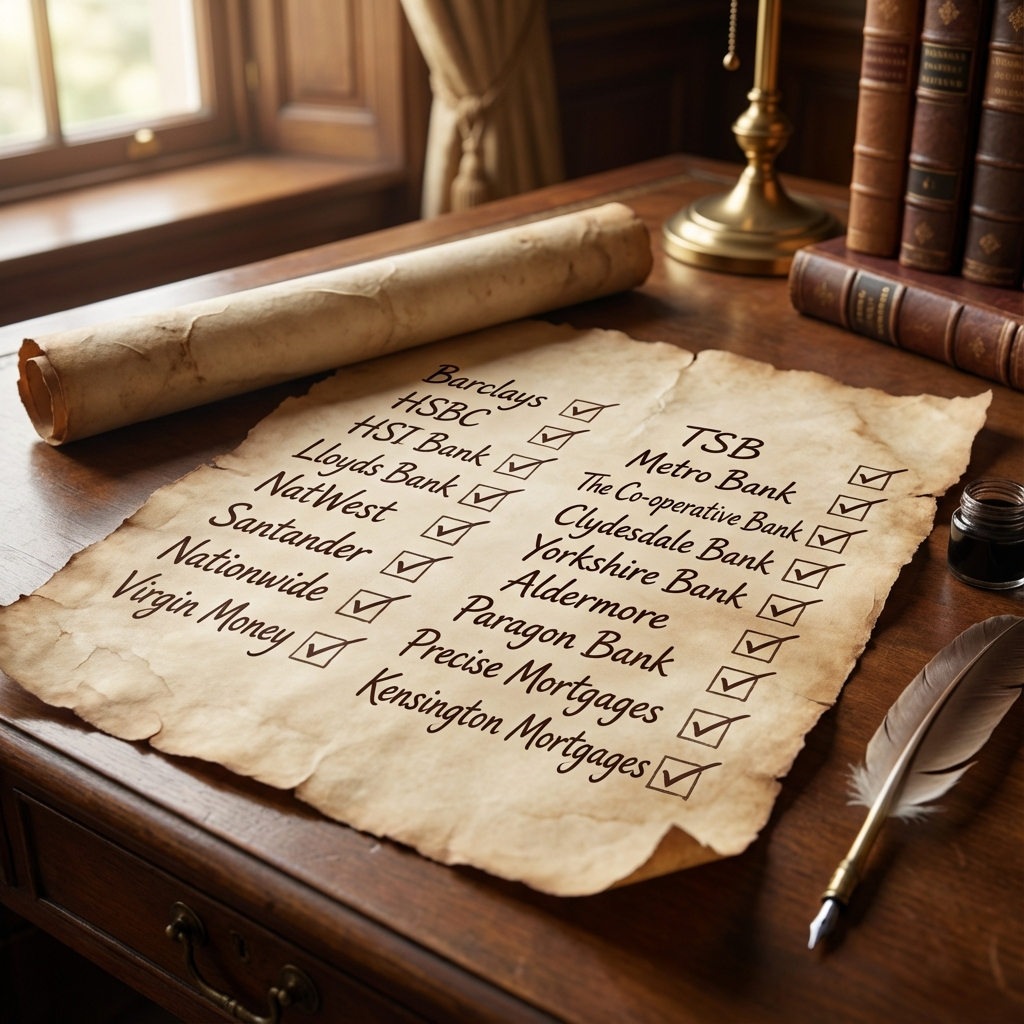 Barclays
HSBC
HSI Bank
Lloyds Bank
NatWest
Santander
Nationwide
Virgin Money
TSB
Metro Bank
The Co-operative Bank
Clydesdale Bank
Yorkshire Bank
Aldermore
Paragon Bank
Precise Mortgages
Kensington Mortgages